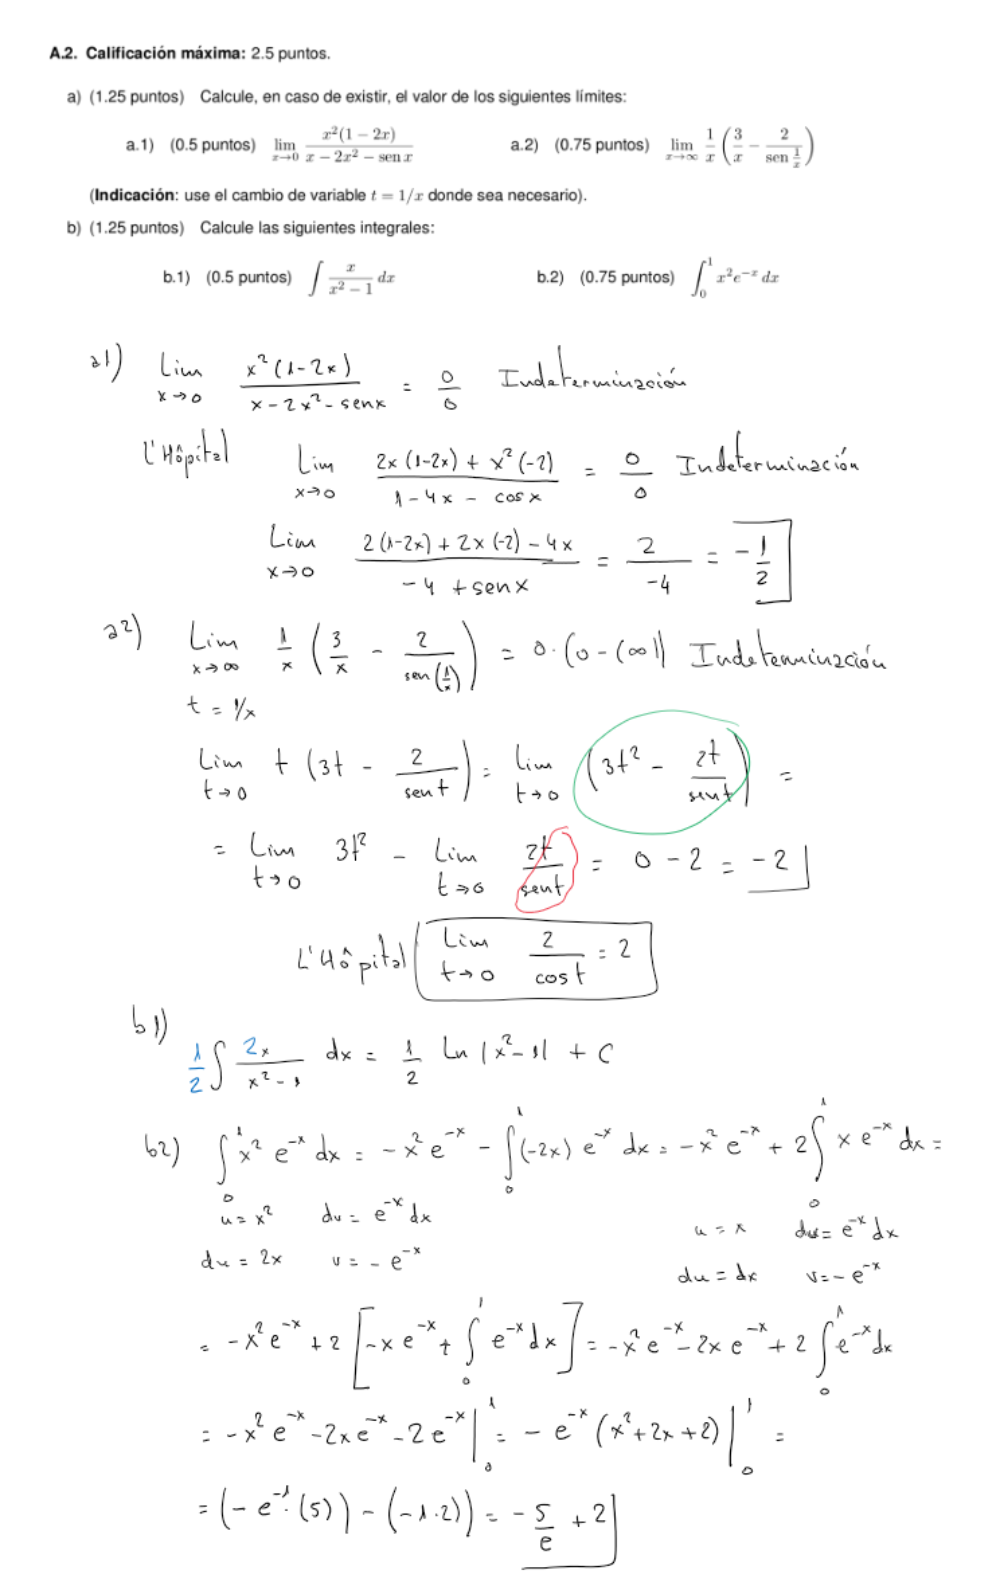 A.2. Calificación máxima: 2.5 puntos.
a) (1.25 puntos) Calcule, en caso de existir, el valor de los siguientes límites:
a.1) (0.5 puntos) lim x→0 x²(1 − 2x) / (x − 2x² − sen x) a.2) (0.75 puntos) lim x→∞ 1/x (3/x − 2/(sen 1/x))
(Indicación: use el cambio de variable t = 1/x donde sea necesario).
b) (1.25 puntos) Calcule las siguientes integrales:
b.1) (0.5 puntos) ∫ x/(x² − 1) dx b.2) (0.75 puntos) ∫₀¹ x²e⁻ˣ dx
a1) Lim x→0 x²(1-2x) / (x-2x²-senx) = 0/0 Indeterminación
L'Hôpital Lim x→0 (2x(1-2x) + x²(-2)) / (1-4x - cosx) = 0/0 Indeterminación
Lim x→0 (2(1-2x) + 2x(-2) - 4x) / (-4 + senx) = 2/-4 = -1/2
a2) Lim x→∞ 1/x (3/x - 2/sen(1/x)) = 0·(0-(∞)) Indeterminación
t = 1/x
Lim t→0 t (3t - 2/sent) = Lim t→0 (3t² - 2t/sent) =
= Lim t→0 3t² - Lim t→0 2t/sent = 0 - 2 = -2
L'Hôpital Lim t→0 2/cost = 2
b1)
1/2 ∫ 2x/(x²-1) dx = 1/2 Ln |x²-1| + C
b2) ∫₀¹ x² e⁻ˣ dx = -x² e⁻ˣ - ∫₀¹ (-2x) e⁻ˣ dx = -x² e⁻ˣ + 2∫₀¹ x e⁻ˣ dx =
u = x² dv = e⁻ˣ dx u = x dv = e⁻ˣ dx
du = 2x v = - e⁻ˣ du = dx v = - e⁻ˣ
= -x² e⁻ˣ + 2 [-x e⁻ˣ + ∫₀¹ e⁻ˣ dx] = -x² e⁻ˣ - 2x e⁻ˣ + 2 ∫₀¹ e⁻ˣ dx
= -x² e⁻ˣ - 2x e⁻ˣ - 2 e⁻ˣ |₀¹ = - e⁻ˣ (x² + 2x + 2) |₀¹ =
= (- e⁻¹·(5)) - (-1·2)) = -5/e + 2